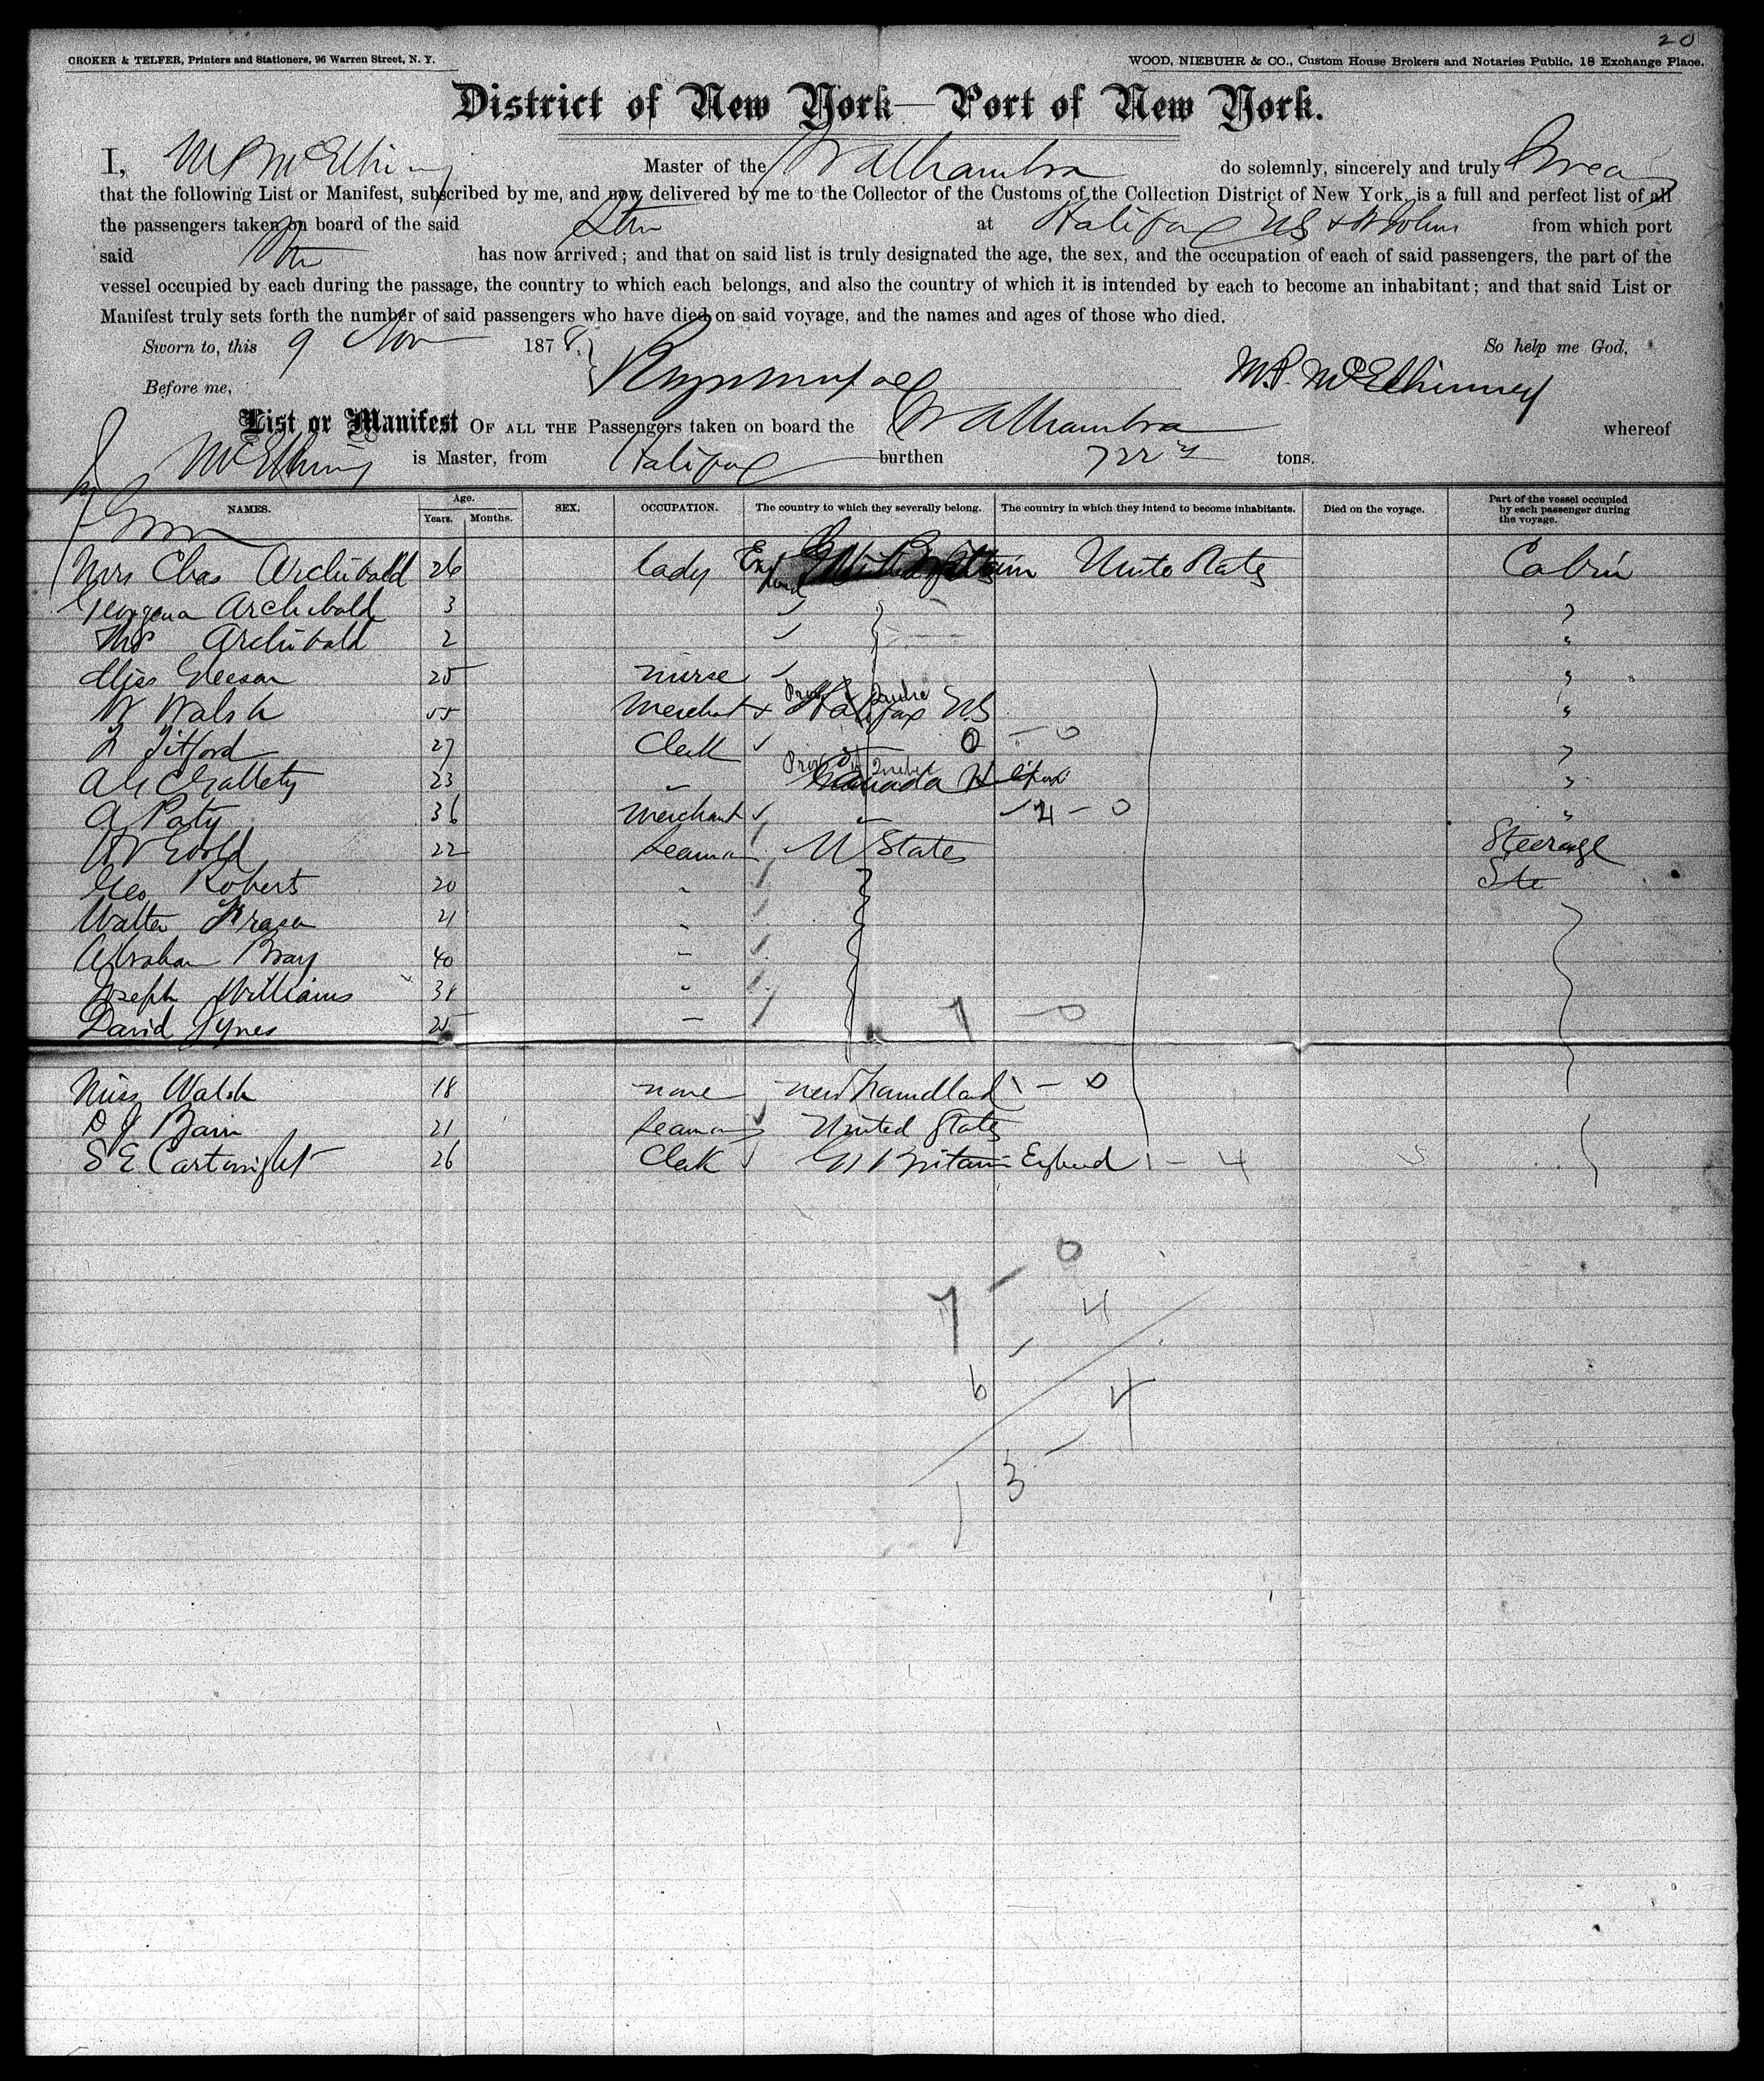 20
CROKER & TELFER, Printers and Stationers, 96 Warren Street, N. Y. WOOD, NIEBUHR & CO., Custom House Brokers and Notaries Public, 18 Exchange Place.
District of New York—Port of New York.
I, M P McElhinney Master of the Alhambra do solemnly, sincerely and truly Swear
that the following List or Manifest, subscribed by me, and now delivered by me to the Collector of the Customs of the Collection District of New York, is a full and perfect list of all
the passengers taken on board of the said Str at Halifax NS & St Johns from which port
said Str has now arrived; and that on said list is truly designated the age, the sex, and the occupation of each of said passengers, the part of the
vessel occupied by each during the passage, the country to which each belongs, and also the country of which it is intended by each to become an inhabitant; and that said List or
Manifest truly sets forth the number of said passengers who have died on said voyage, and the names and ages of those who died.
Sworn to, this 9 Nov 1878. So help me God,
Before me, M.P. McElhinney
List or Manifest OF ALL THE Passengers taken on board the Alhambra whereof
McElhinney is Master, from Halifax burthen 722 tons.
NAMES. Age. Years. Months. SEX. OCCUPATION. The country to which they severally belong. The country in which they intend to become inhabitants. Died on the voyage. Part of the vessel occupied by each passenger during the voyage.
Mrs Chas Archibald 26 lady England United States Cabin
Georgena Archibald 3 "
Archibald 2 "
Miss Gleeson 25 nurse "
W Walsh 55 Merchant Halifax NS "
Titford 27 Clerk 0 - 0 "
23 " Canada "
A Paty 36 Merchant " - 4 - 0 "
22 Seaman U States Steerage
Geo Robert 20 " Ste
Walter Fraser 21 "
Abraham Bray 40 "
Joseph Williams 31 "
David Tynes 25 " 7 - 0
Miss Walsh 18 none newfoundland 1 - 0
D J Bain 21 Seaman United States
S E Cartwright 26 Clerk Gt Britain England 1 - 4
7 - 0
4
6 - 4
13 - 4